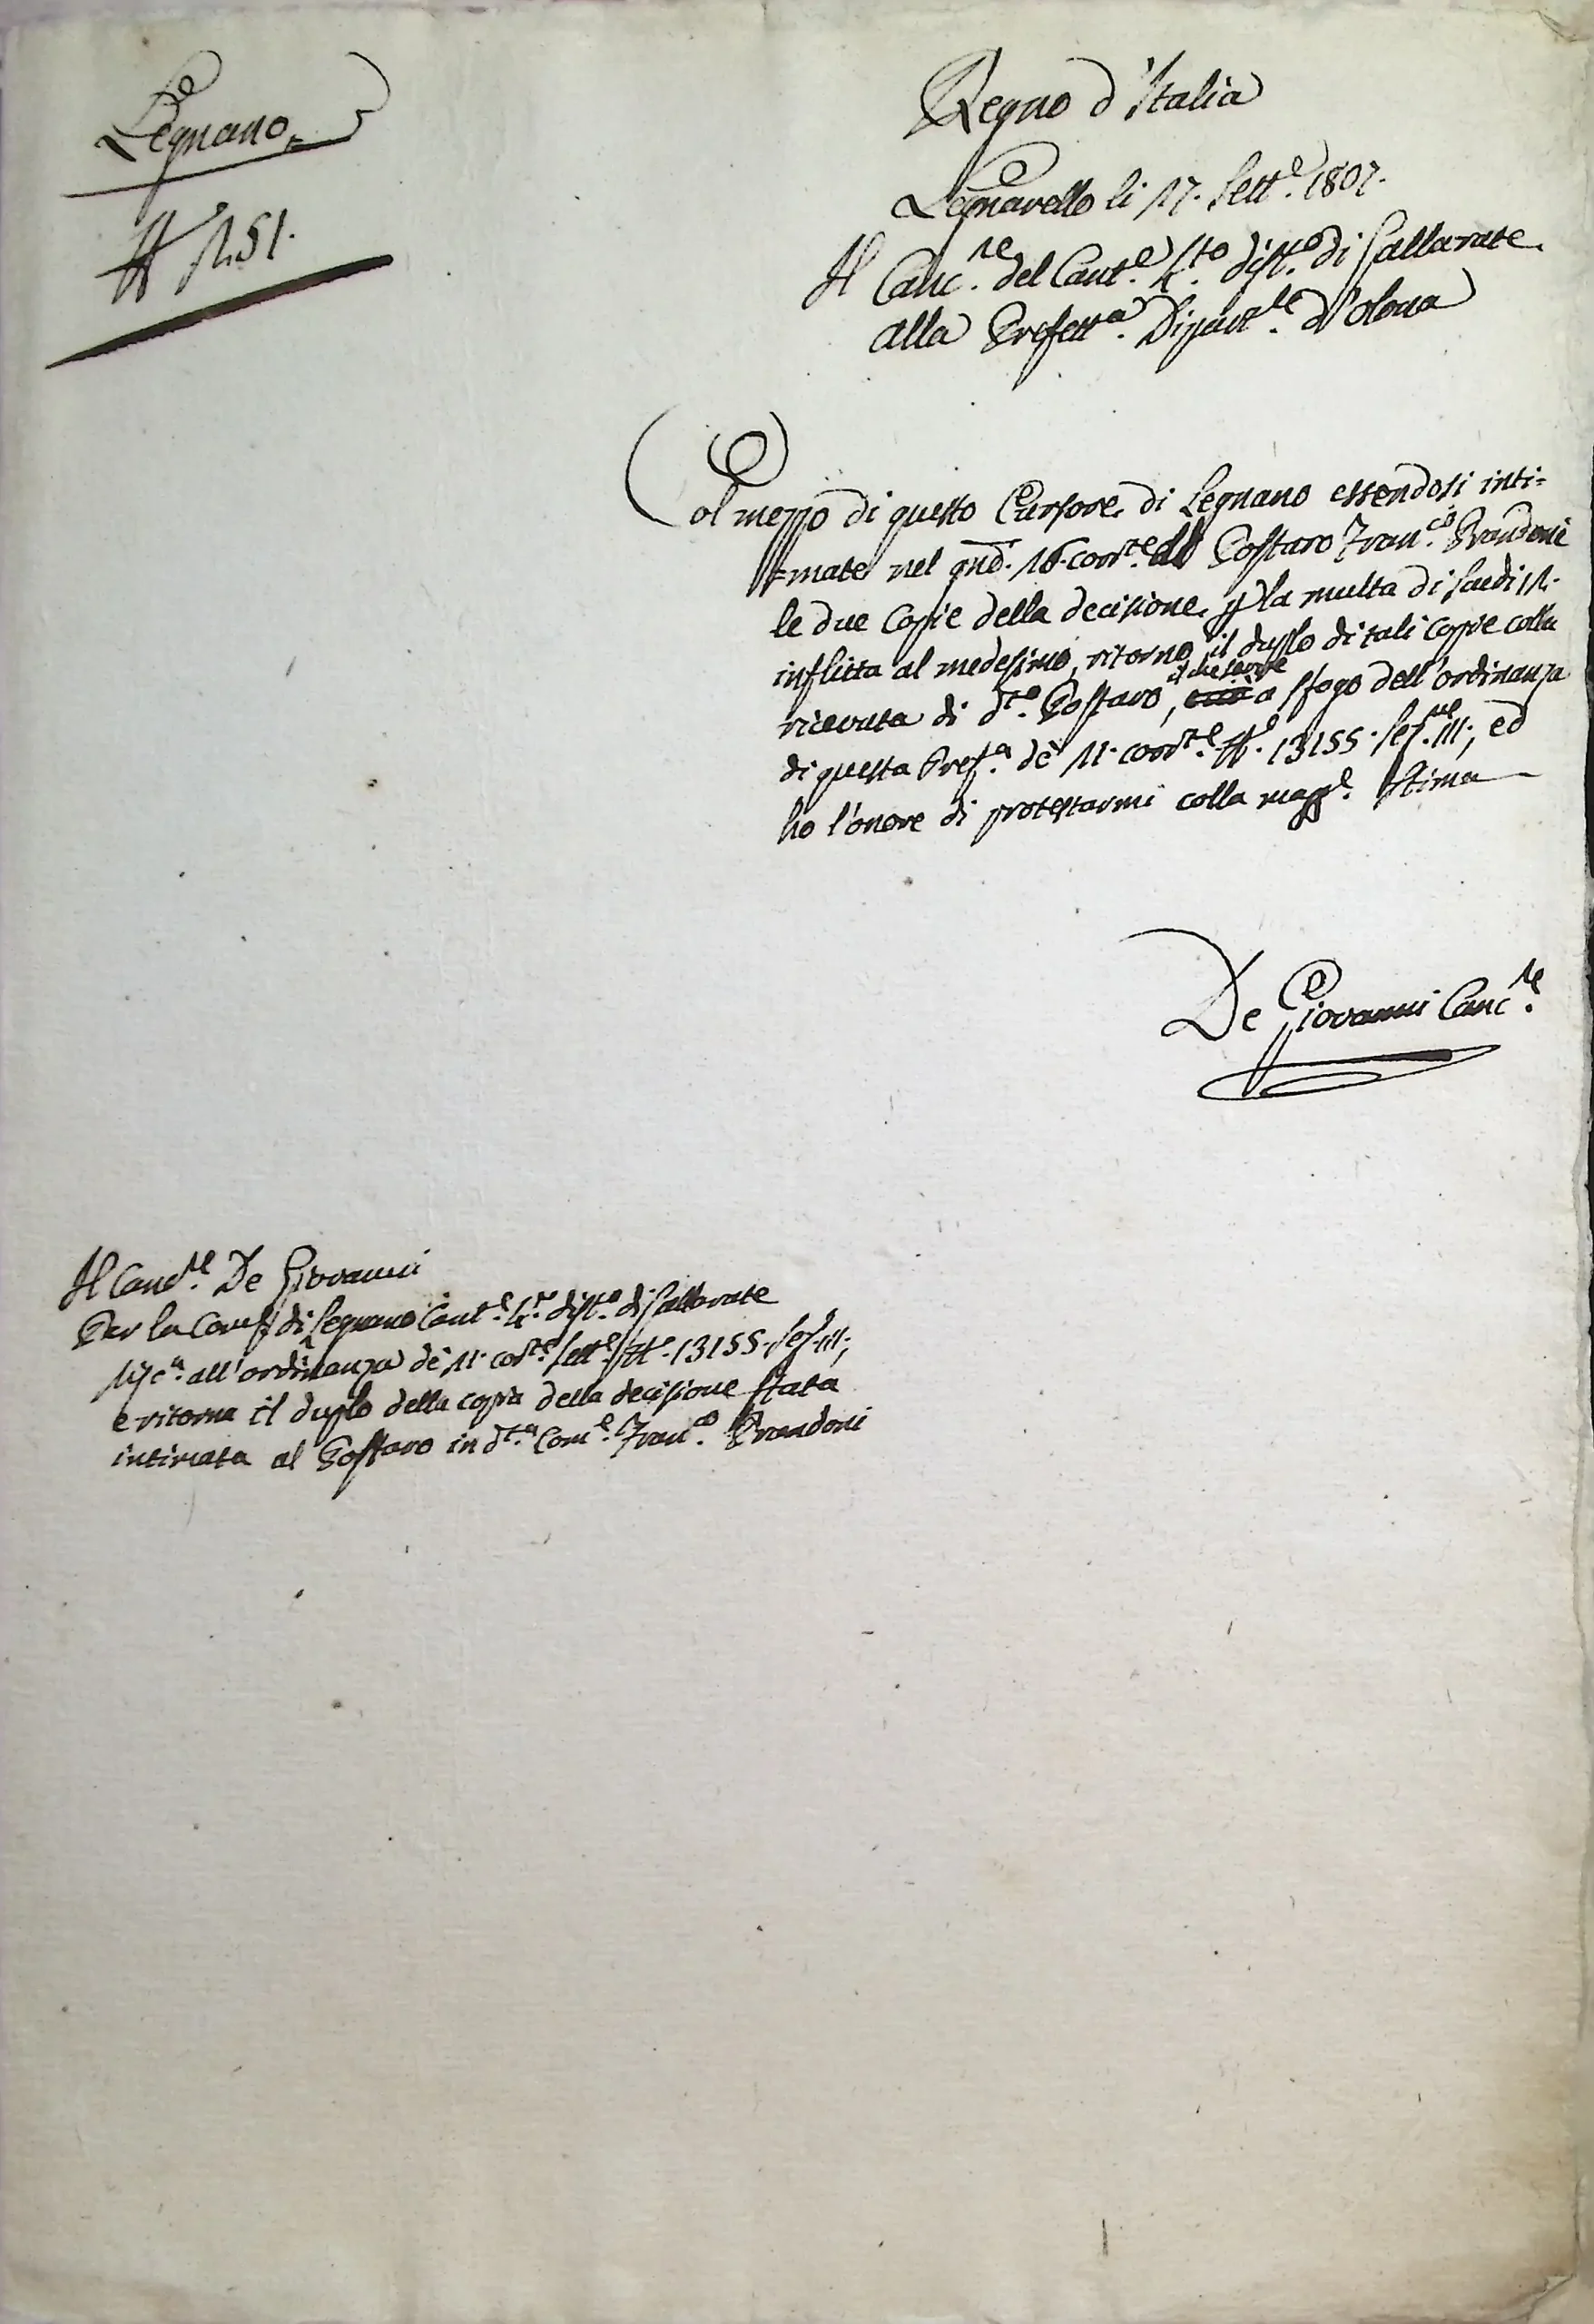 Legnano
N.° 151.
Regno d'Italia
Legnarello li 17. Sett.e 1807.
Il Canc.re del Cant.e 4.to dist.o di Gallarate
alla Prefett.a Dipart.le d'Olona
Col mezzo di questo Cursore di Legnano essendosi inti=
=mate nel gno. 16. corr.te al Postaro Fran.co Prandoni
le due Copie della decisione, p la multa di scudi 12.
inflitta al medesimo, ritorno il duplo di tali copie colla
ricevuta di d.to Postaro, il che serve a sfogo dell'ordinanza
di questa Pref.a de 11. corr.te N.o 13155. Sez.ne III.; ed
ho l'onore di protestarmi colla magg.e stima
De Giovanni Canc.re
Il Canc.re De Giovanni
Per la Com.e di Legnano Cant.e 4.to dist.o di Gallarate
all'ordinanza de 11. cor.te Sett.e N.o 13155. Sez. III.;
e ritorna il duplo della copia della decisione stata
intimata al Postaro in d.ta Com.e Fran.co Prandoni